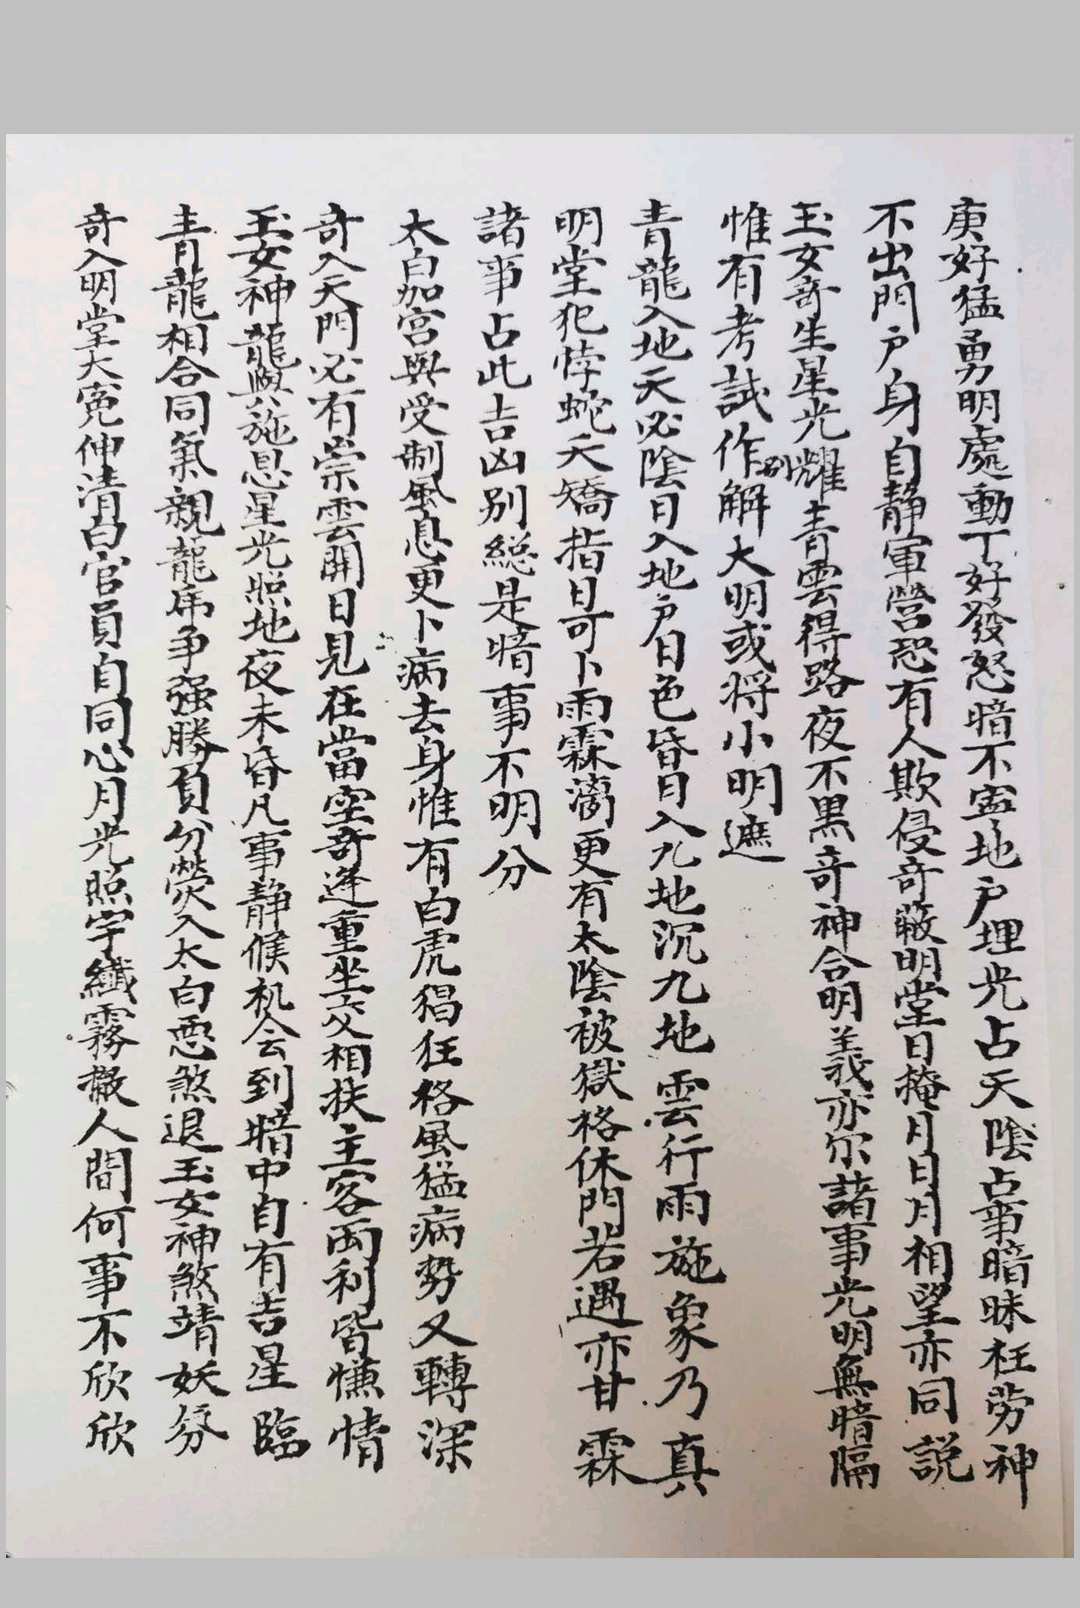 庚好猛勇明處動丁好發怒暗不寍地户埋光占天陰占事暗昧枉勞神
不出門户身自靜軍營恐有人欺侵奇蔽明堂日掩月日月相望亦同説
玉女奇生星光耀青雲得路夜不黑奇神合明義亦尔諸事光明無暗隔
惟有考試作别解大明或將小明遮
青龍入地天必陰日入地户日色昏日入九地沉九地雲行雨施象乃真
明堂犯悖蛇夭矯指日可卜雨霖滴更有太陰被獄格休門若遇亦甘霖
諸事占此吉凶别総是暗事不明分
太白加宫與受制風息更卜病去身惟有白虎猖狂格風猛病勢又轉深
奇入天門必有崇雲開日見在當空奇逢重坐交相扶主客両利皆慊情
玉女神龍與施恩星光照地夜未昏凡事靜候机会到暗中自有吉星臨
青龍相合同氣親龍虎争强勝負分熒入太白惡煞退玉女神煞靖妖氛
奇入明堂大寃伸清白官員自同心月光照宇纖霧撤人間何事不欣欣